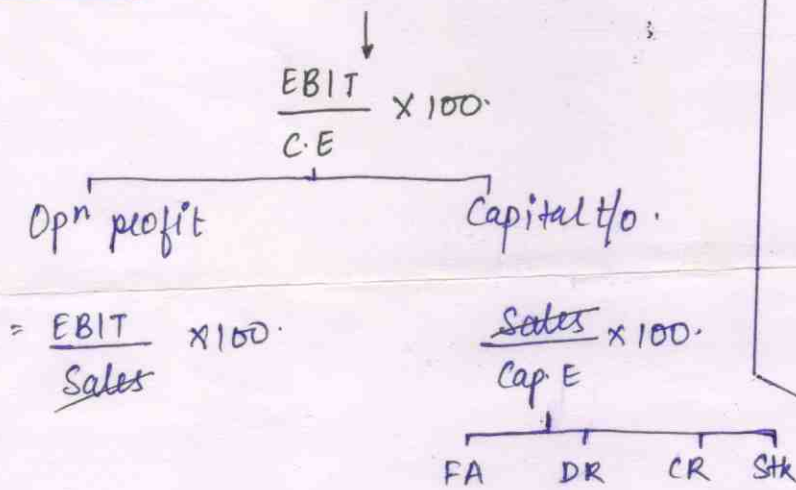 EBIT
C.E × 100.
Opn profit Capital t/o.
= EBIT × 100. Sales × 100.
Sales Cap. E
FA DR CR Stk